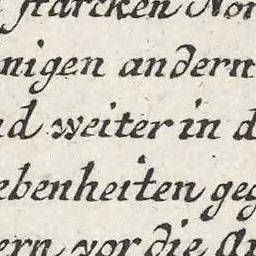 starcken Nor
nigen andern
nd weiter in d
ebenheiten geg
ern vor die An